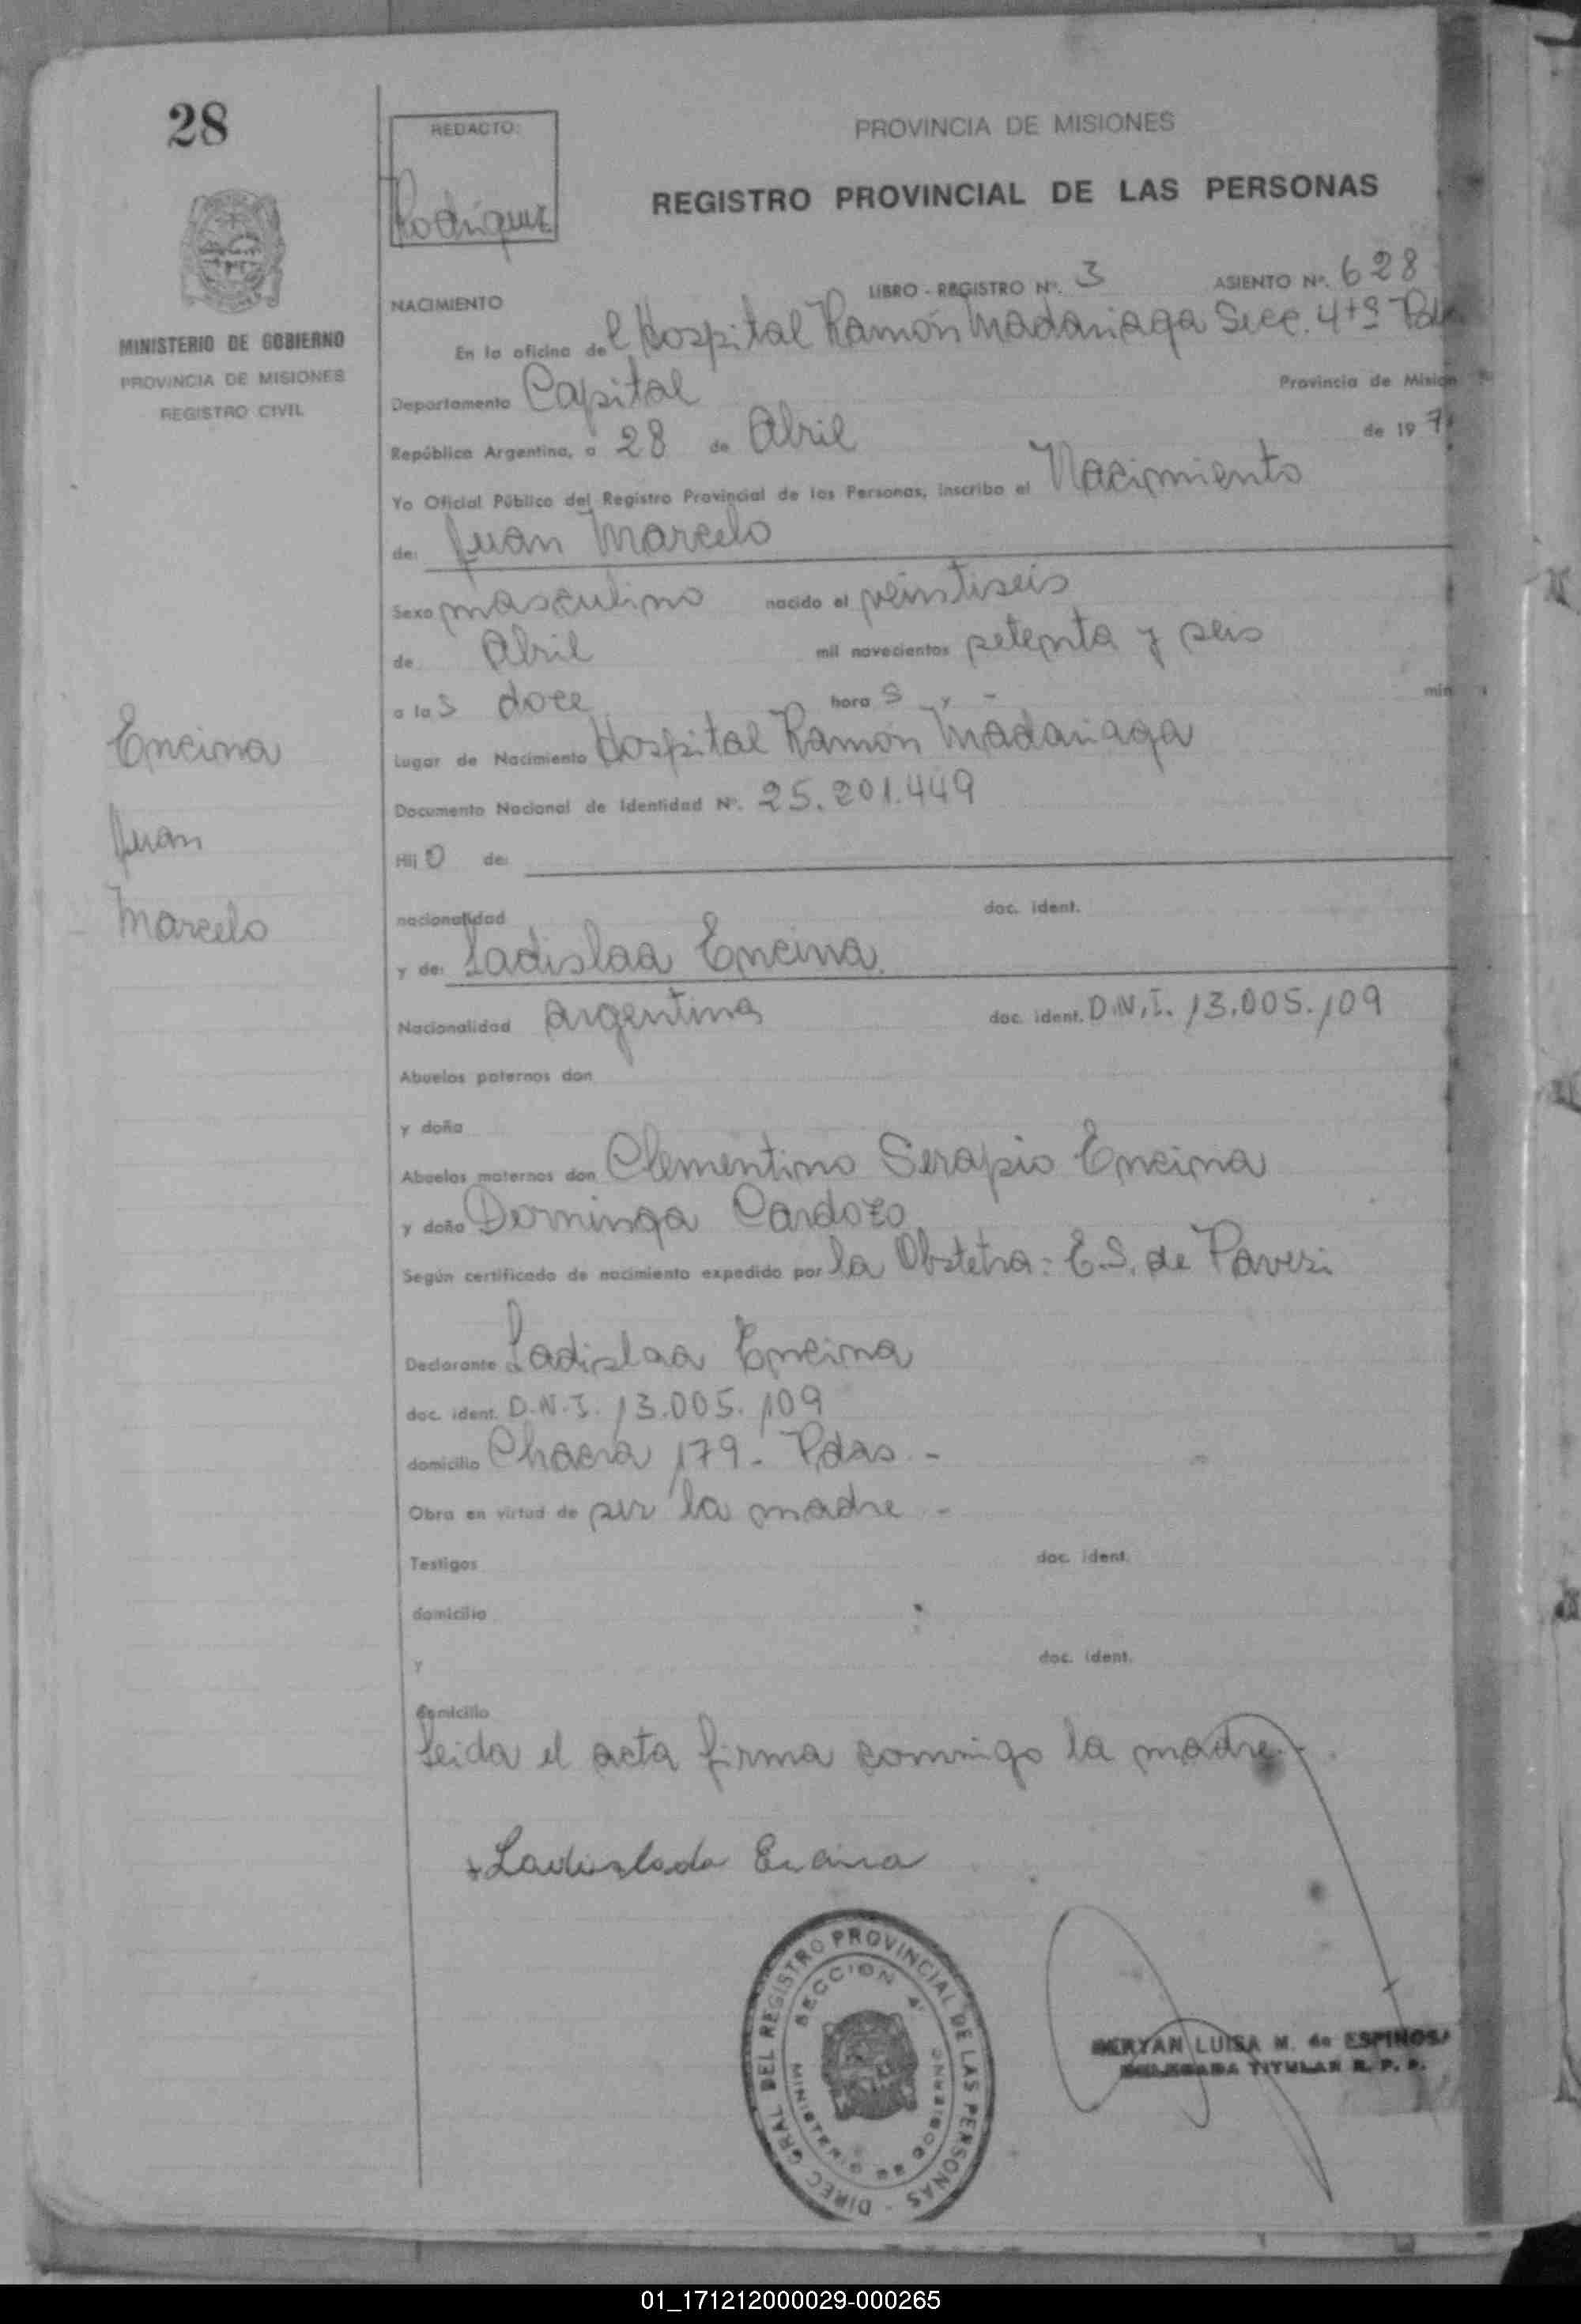 28
REDACTO:
Rodriguez
PROVINCIA DE MISIONES
REGISTRO PROVINCIAL DE LAS PERSONAS
MINISTERIO DE GOBIERNO
PROVINCIA DE MISIONES
REGISTRO CIVIL
LIBRO - REGISTRO Nº. 3 ASIENTO Nº. 628
NACIMIENTO
En la oficina del Hospital Ramón Madariaga Secc. 4ta
Departamento Capital Provincia de Mision
República Argentina, a 28 de Abril de 197
Yo Oficial Público del Registro Provincial de las Personas, inscribo el Nacimiento
de: Juan Marcelo
Sexo masculino nacido el veintiseis
de Abril mil novecientos setenta y seis
a las doce horas y - min
Lugar de Nacimiento Hospital Ramón Madariaga
Documento Nacional de Identidad Nº. 25.201.449
Hijo de:
nacionalidad doc. ident.
y de: Ladislaa Encina
Nacionalidad argentina doc. ident. D.N.I. 13.005.109
Abuelos paternos don
y doña
Abuelos maternos don Clementino Serapio Encina
y doña Dominga Cardozo
Según certificado de nacimiento expedido por la Obstetra: E.S. de Pavesi
Declarante Ladislaa Encina
doc. ident. D.N.I. 13.005.109
domicilio Chacra 179. Pdas. -
Obra en virtud de ser la madre -
Testigos doc. ident.
domicilio
y doc. ident.
domicilio
Leida el acta firma conmigo la madre.-
Ladislada Encina
Encina
Juan
Marcelo
DIREC. GRAL DEL REGISTRO PROVINCIAL DE LAS PERSONAS -
SECCION 4ª
MINISTERIO DE GOBIERNO
LUISA M. de ESPINOSA
DELEGADA TITULAR R. P. P.
01_171212000029-000265